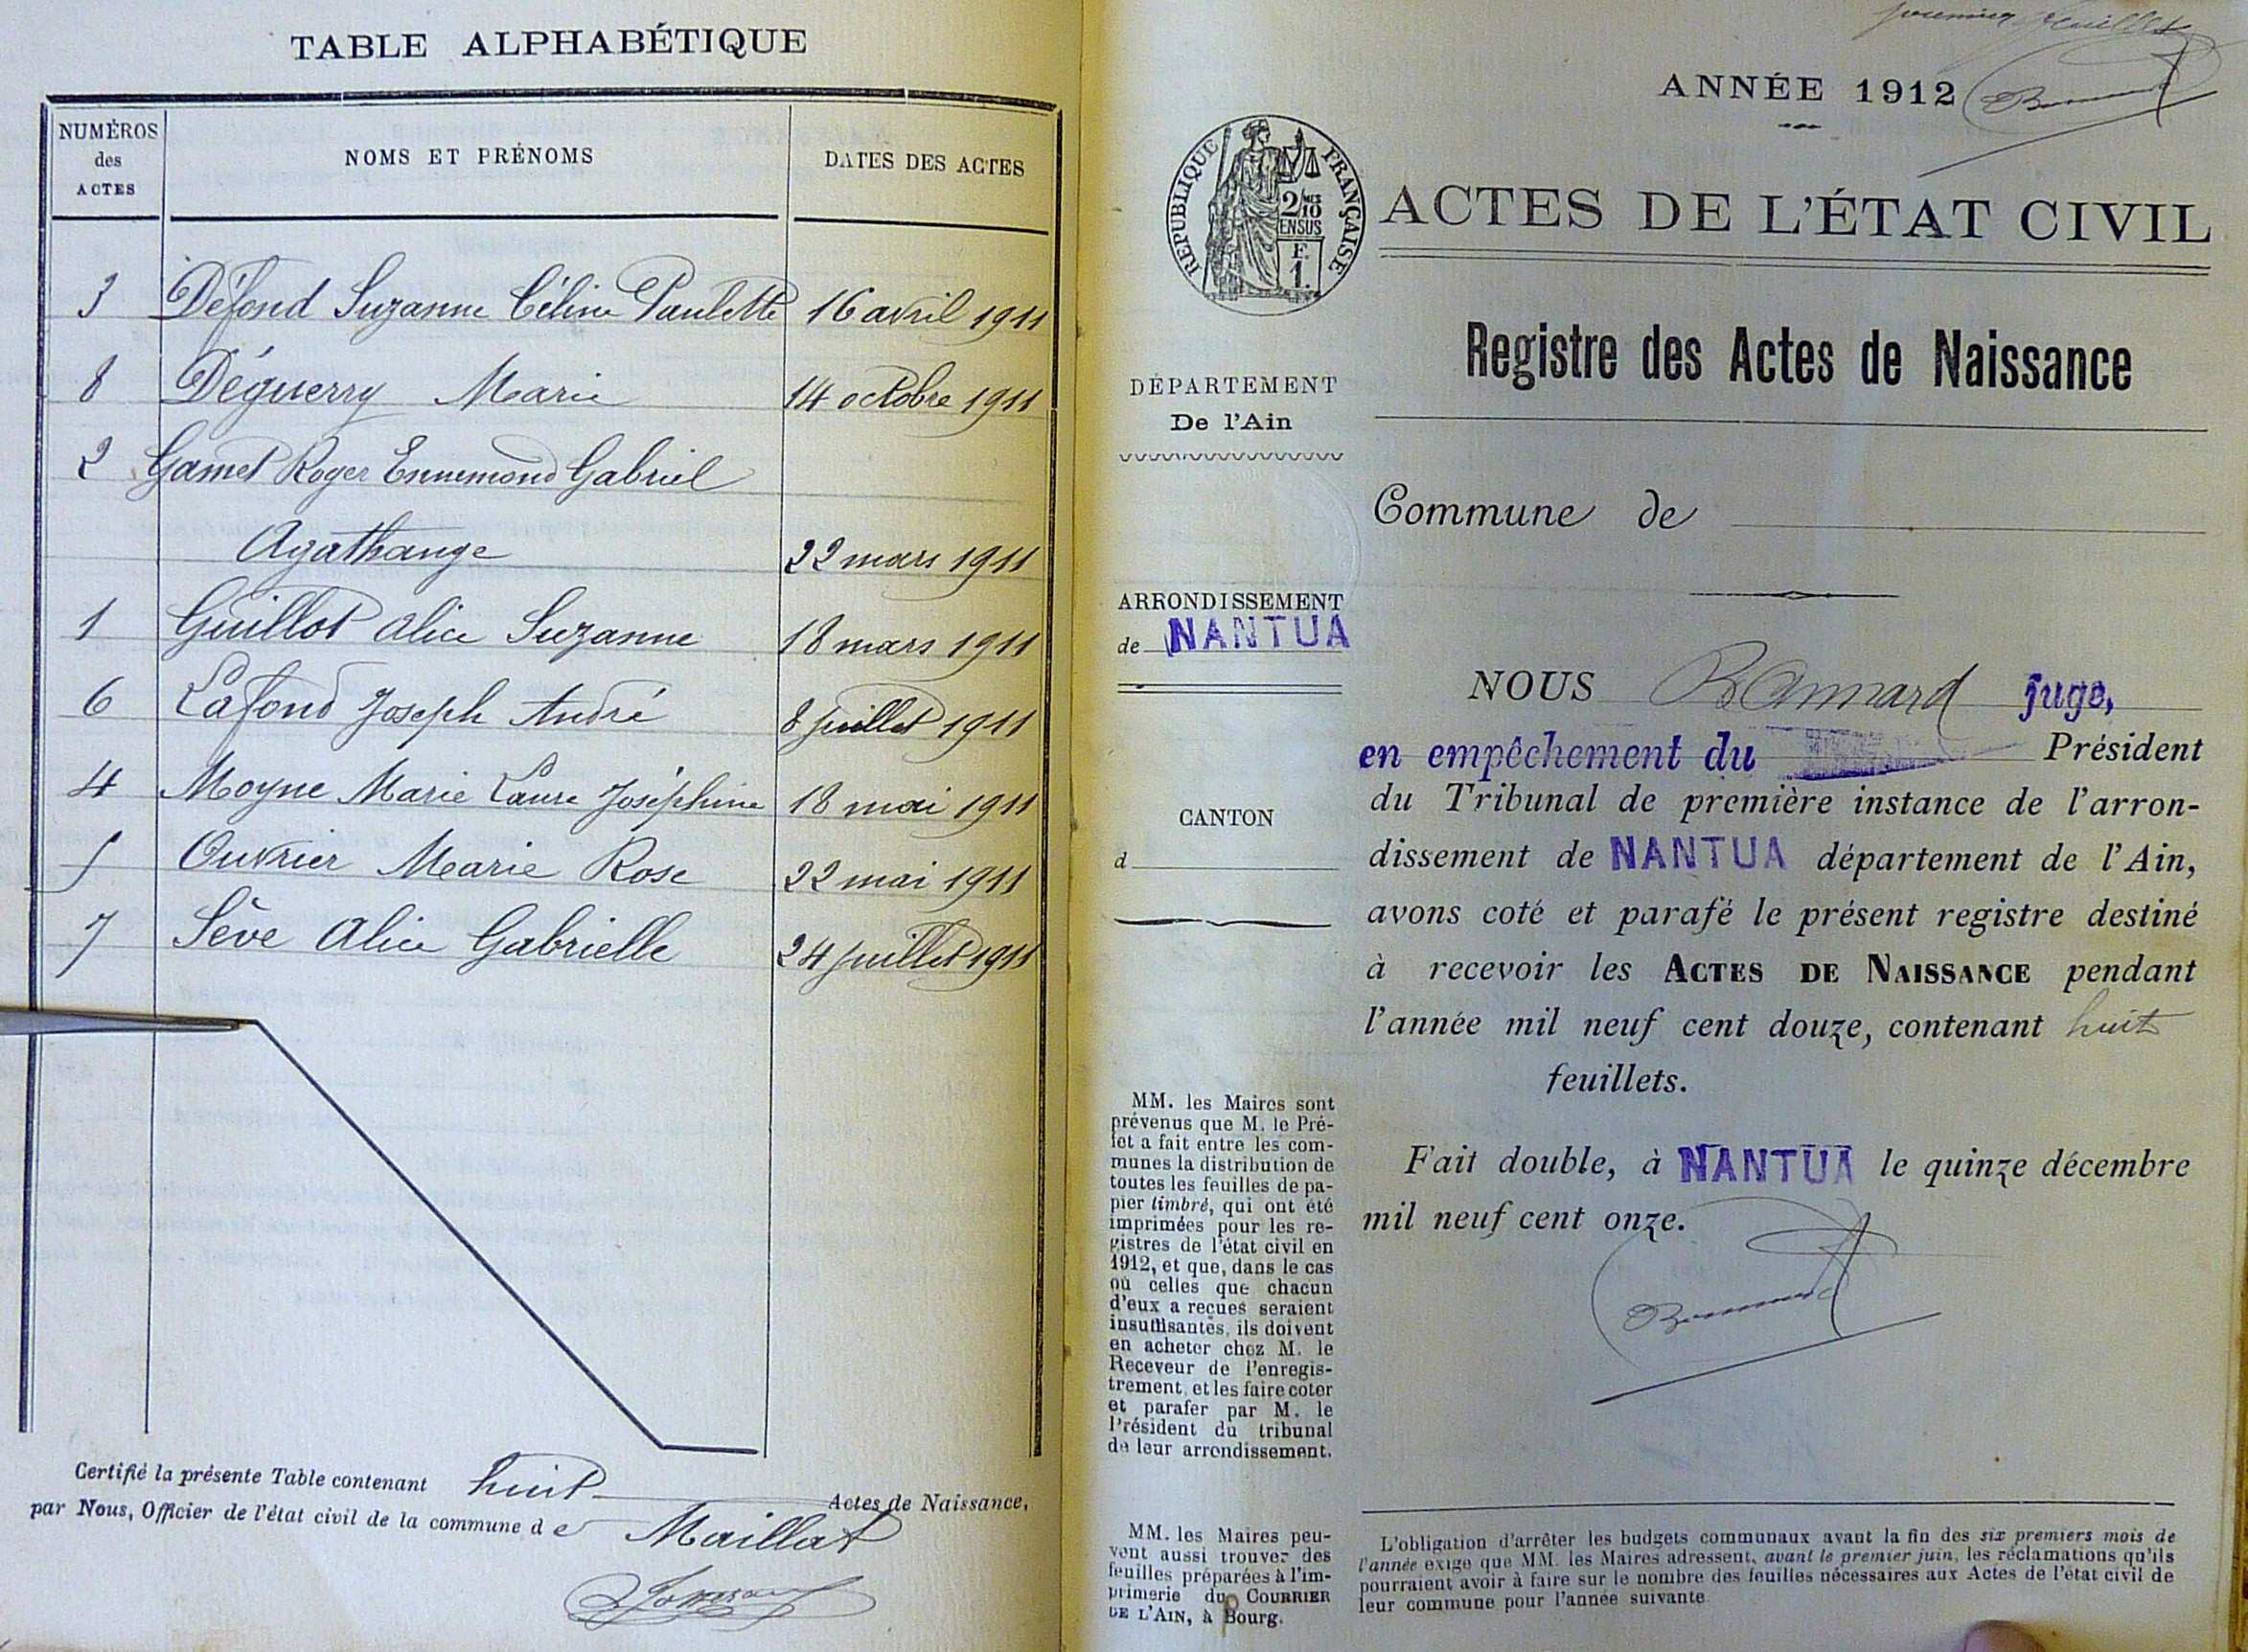 TABLE ALPHABÉTIQUE
NUMÉROS des ACTES
NOMS ET PRÉNOMS
DATES DES ACTES
3 Défond Suzanne Céline Paulette 16 avril 1911
8 Déguerry Marie 14 octobre 1911
2 Gamet Roger Ennemond Gabriel
Agathange 22 mars 1911
1 Guillot Alice Suzanne 18 mars 1911
6 Lafond Joseph André 8 juillet 1911
4 Moyne Marie Laure Joséphine 18 mai 1911
5 Ouvrier Marie Rose 22 mai 1911
7 Sève Alice Gabrielle 24 juillet 1911
Certifié la présente Table contenant huit Actes de Naissance,
par Nous, Officier de l'état civil de la commune de Maillat
premier feuillet
ANNÉE 1912
RÉPUBLIQUE FRANÇAISE
2/10
EN SUS
F.
1.
ACTES DE L'ÉTAT CIVIL
Registre des Actes de Naissance
DÉPARTEMENT
De l'Ain
Commune de
ARRONDISSEMENT
de NANTUA
CANTON
d
NOUS Bonnard Juge,
en empêchement du Président
du Tribunal de première instance de l'arron-
dissement de NANTUA département de l'Ain,
avons coté et parafé le présent registre destiné
à recevoir les ACTES DE NAISSANCE pendant
l'année mil neuf cent douze, contenant huit
feuillets.
Fait double, à NANTUA le quinze décembre
mil neuf cent onze.
Bonnard
MM. les Maires sont
prévenus que M. le Pré-
fet a fait entre les com-
munes la distribution de
toutes les feuilles de pa-
pier timbré, qui ont été
imprimées pour les re-
gistres de l'état civil en
1912, et que, dans le cas
où celles que chacun
d'eux a reçues seraient
insuffisantes, ils doivent
en acheter chez M. le
Receveur de l'enregis-
trement, et les faire coter
et parafer par M. le
Président du tribunal
de leur arrondissement.
MM. les Maires peu-
vent aussi trouver des
feuilles préparées à l'im-
primerie du COURRIER
DE L'AIN, à Bourg.
L'obligation d'arrêter les budgets communaux avant la fin des six premiers mois de
l'année exige que MM. les Maires adressent, avant le premier juin, les réclamations qu'ils
pourraient avoir à faire sur le nombre des feuilles nécessaires aux Actes de l'état civil de
leur commune pour l'année suivante.